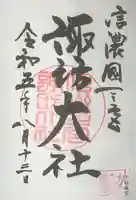 信濃國一之宮
諏訪大社
令和五年八月十三日